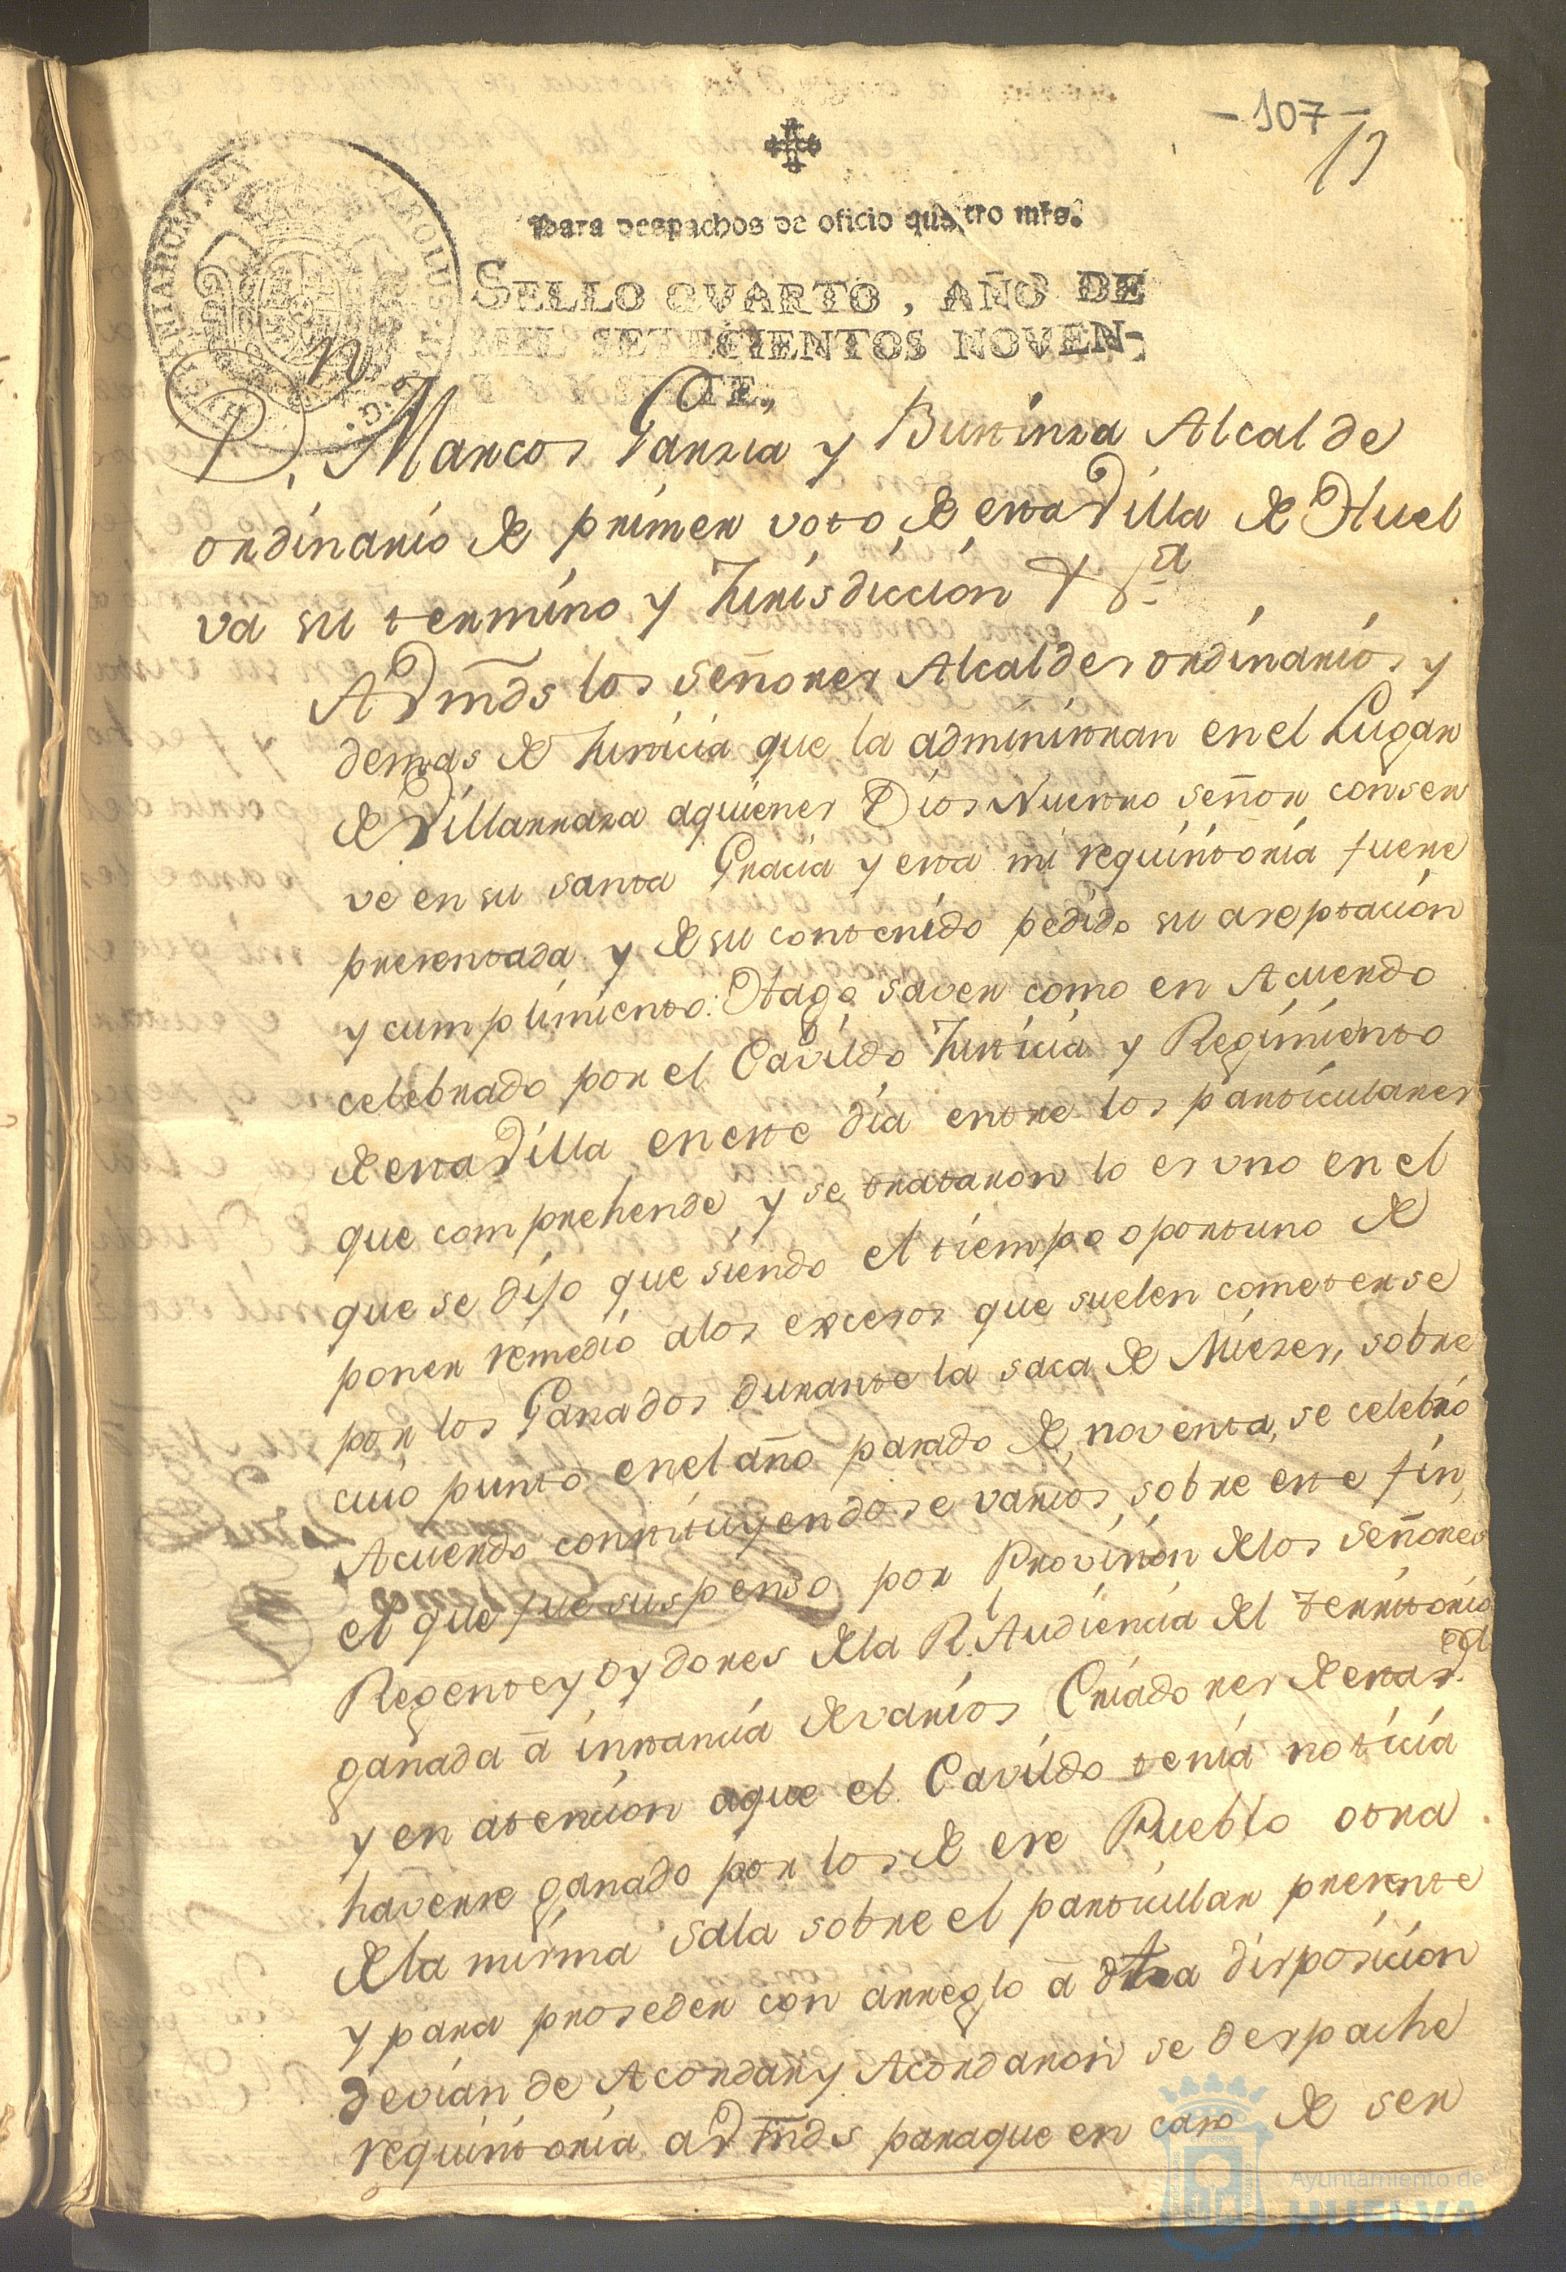 -107-
Para despachos de oficio quatro mrs.
SELLO QVARTO, AÑO DE
MIL SETECIENTOS NOVEN-
TA Y SIETE.
CAROLUS
HISPANIARUM REX
Dn. Marcos Garzia y Alcalde
ordinario de primer voto de esta Villa de Huel
va su termino y Jurisdiccion &ra
A Vmds los señores Alcaldes ordinarios y
demas de Justicia que la administran en el Lugar
de Villarrasa aquienes Dios Nuestro señor conser
ve en su santa Gracia y esta mi requisitoria fuere
presentada y de su contenido pedido su aseptacion
y cumplimiento: Hago saver como en Acuerdo
celebrado por el Cavildo Justicia y Regimiento
de esta Villa en este dia entre los particulares
que comprehende y se trataron lo es uno en el
que se dijo que siendo el tiempo oportuno de
poner remedio alos excesos que suelen cometerse
por los Ganados durante la saca de Mieses, sobre
cuio punto en el año pasado de noventa, se celebró
Acuerdo constituyendose varios sobre este fin,
el que fue suspenso por Provision delos señores
Regente y Oydores dela Rl. Audiencia del territorio
ganada á instancia de varios Criadores de esta Vª
y en atencion aque el Cavildo tenia noticia
haverse ganado por los de ese Pueblo otra
dela misma sala sobre el particular presente
y para proseder con arreglo á dha disposicion
devian de Acordar y Acordaron se despache
requisitoria a Vmds paraque en caso de ser
Ayuntamiento de
HUELVA